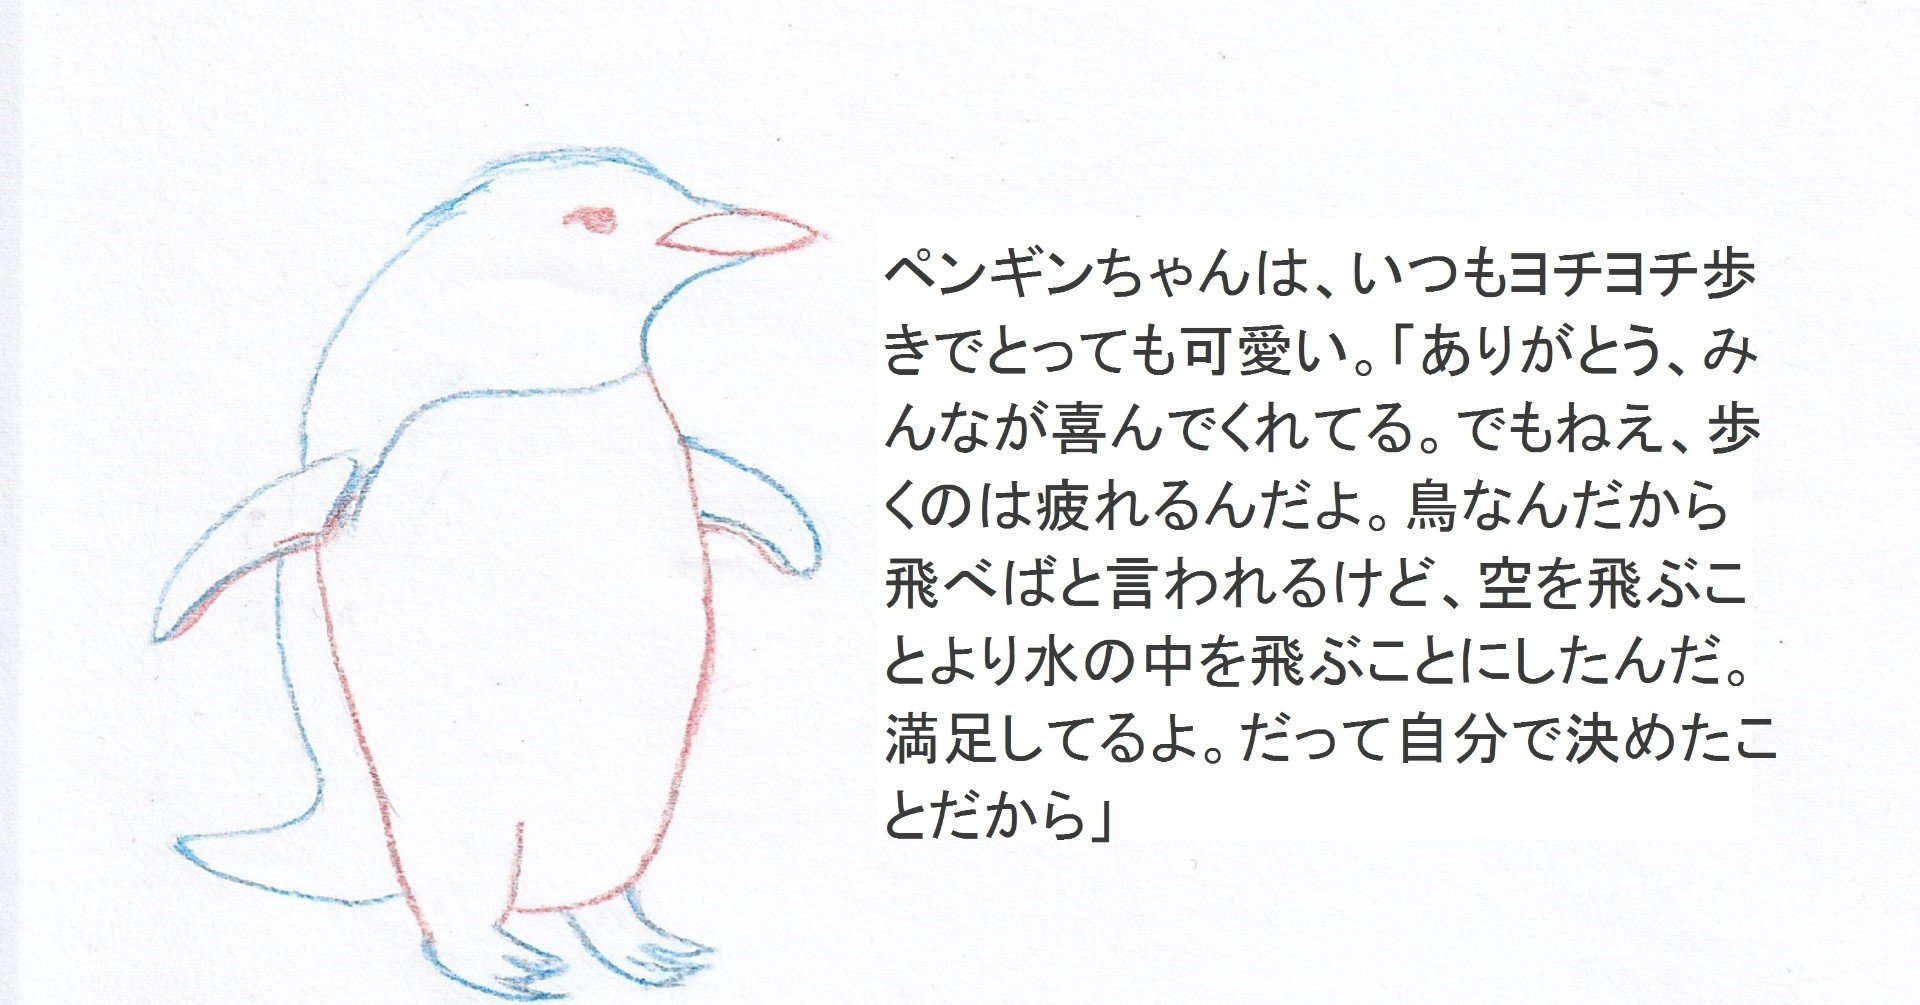 ペンギンちゃんは、いつもヨチヨチ歩
きでとっても可愛い。「ありがとう、み
んなが喜んでくれてる。でもねえ、歩
くのは疲れるんだよ。鳥なんだから
飛べばと言われるけど、空を飛ぶこ
とより水の中を飛ぶことにしたんだ。
満足してるよ。だって自分で決めたこ
とだから」